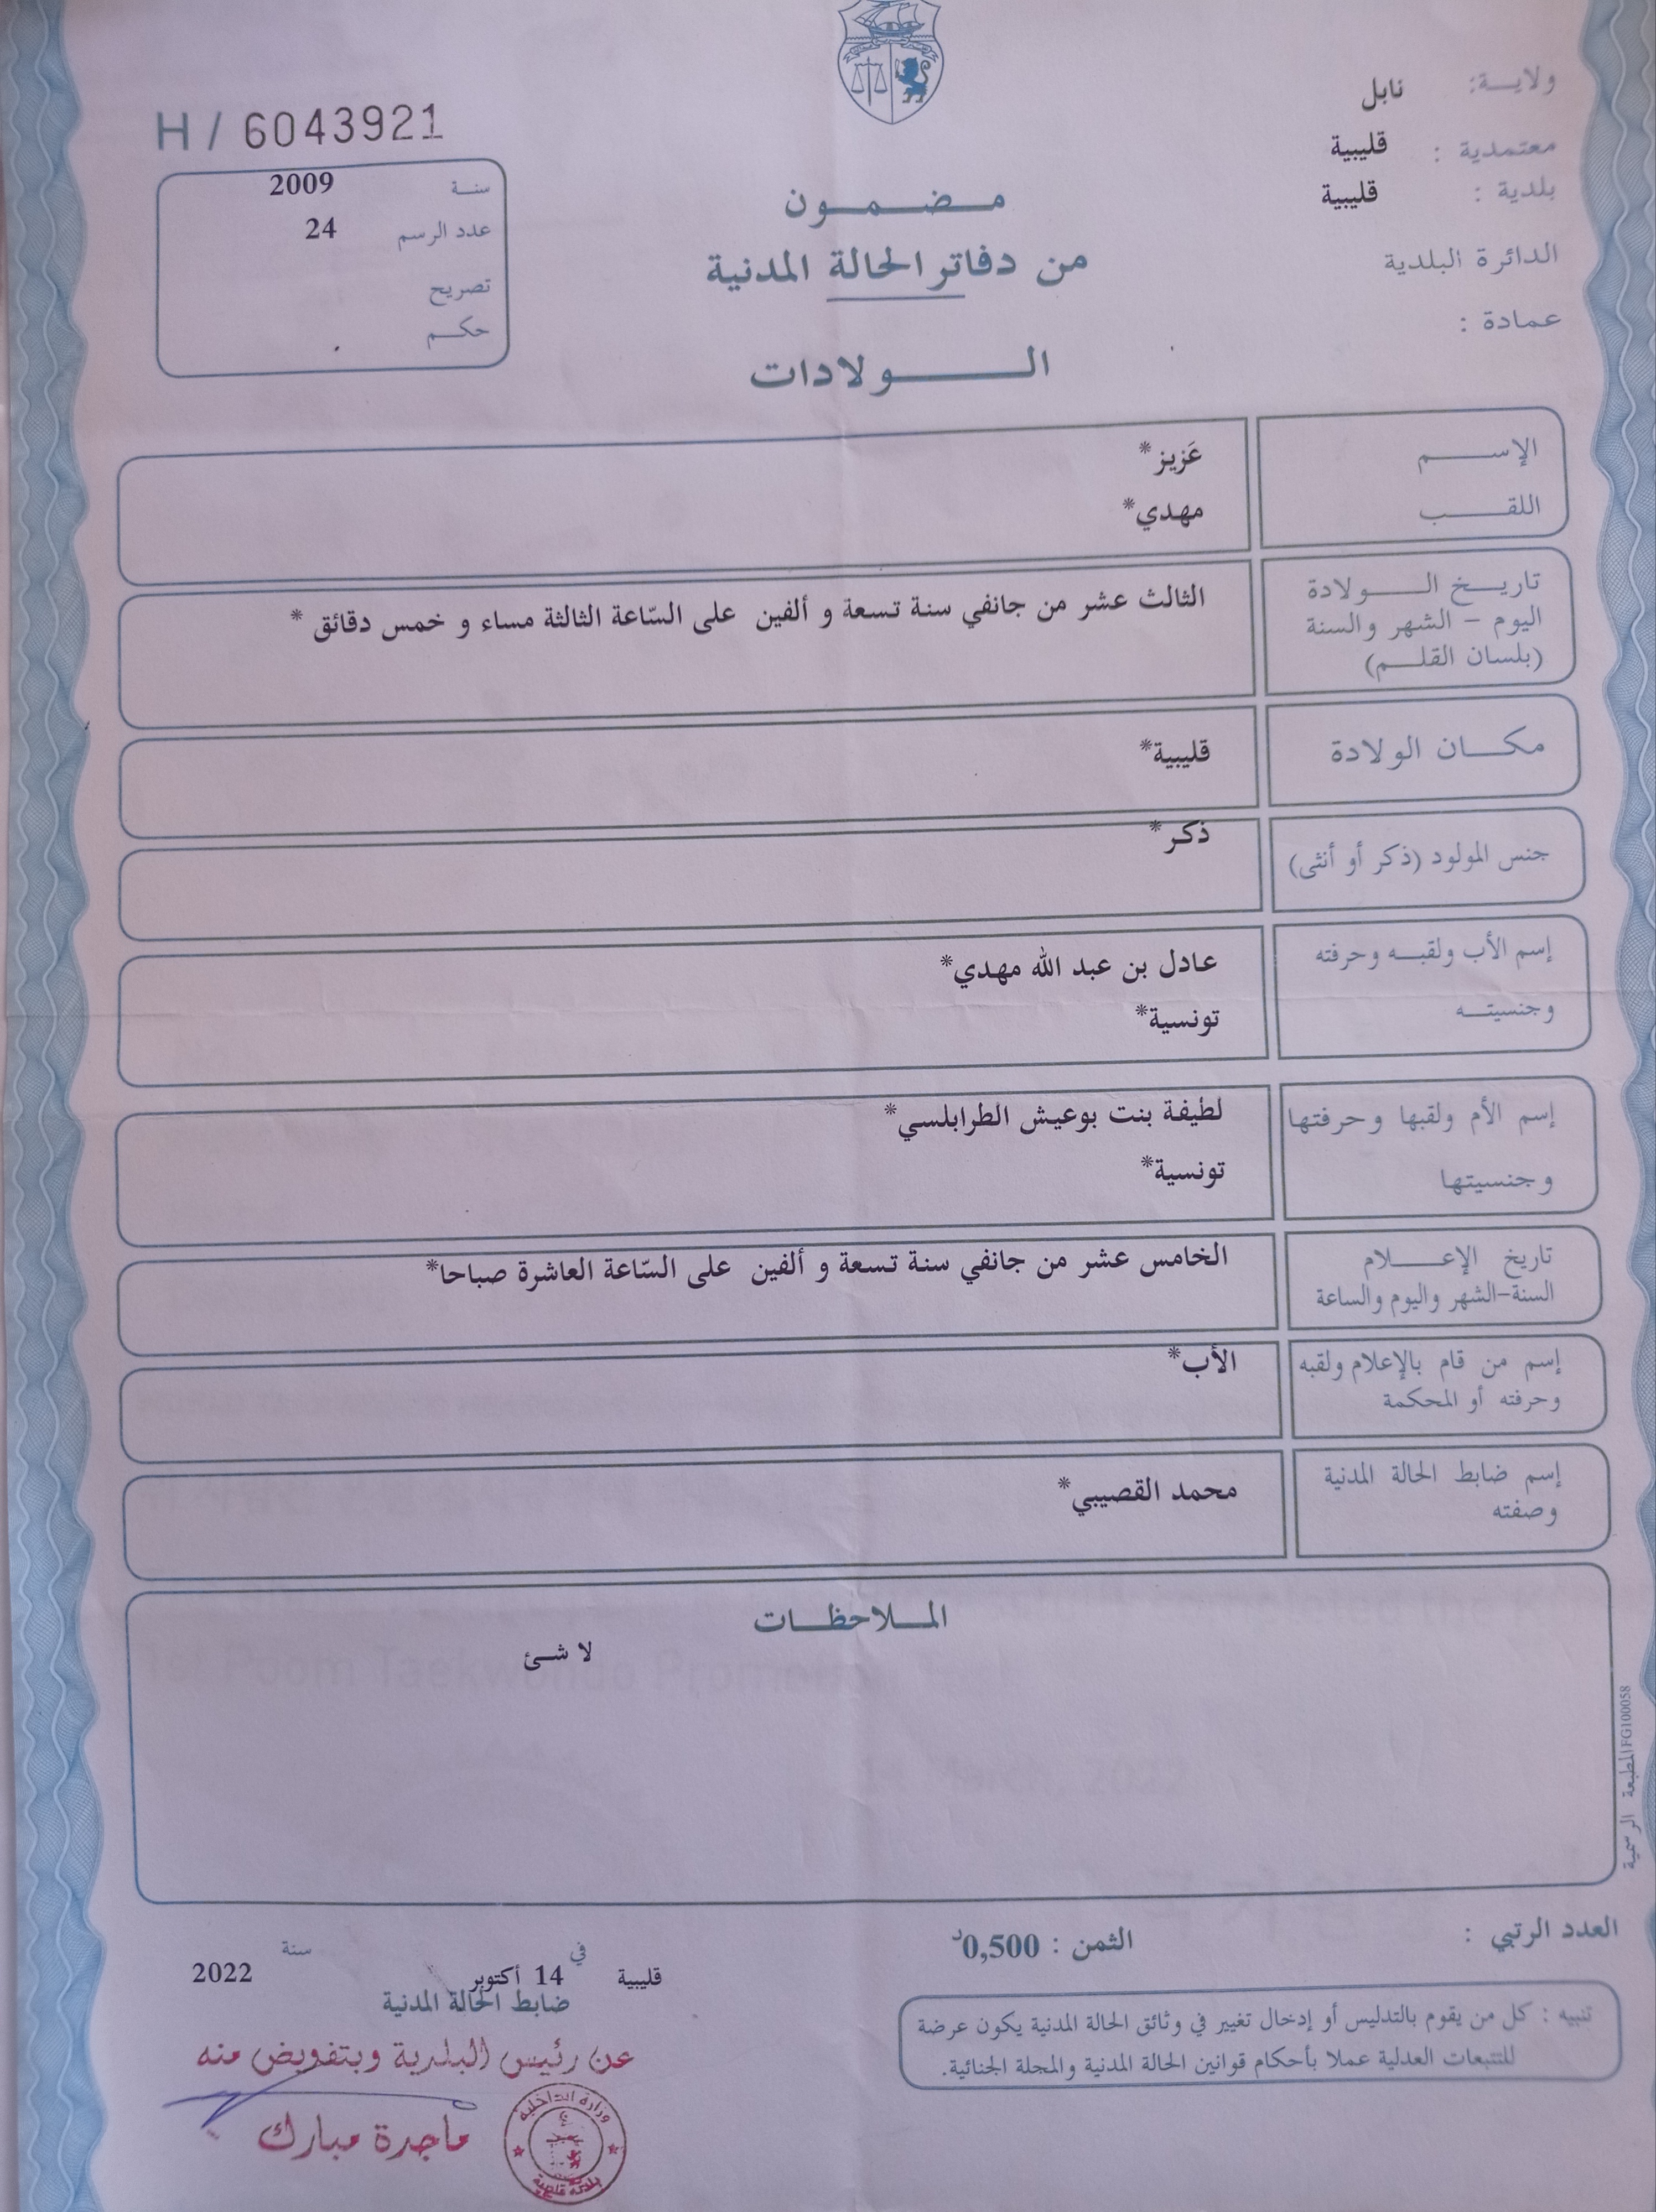 ولاية: نابل
معتمدية : قليبية
بلدية : قليبية
الدائرة البلدية
عمادة :
H / 6043921
سنة 2009
عدد الرسم 24
تصريح
حكم
مضمون
من دفاتر الحالة المدنية
الولادات
الإسم عَزيز*
اللقب مهدي*
تاريخ الولادة
اليوم - الشهر والسنة
(بلسان القلم)
الثالث عشر من جانفي سنة تسعة و ألفين على السّاعة الثالثة مساء و خمس دقائق *
مكان الولادة قليبية*
جنس المولود (ذكر أو أنثى) ذكر*
إسم الأب ولقبه وحرفته عادل بن عبد الله مهدي*
وجنسيته تونسية*
إسم الأم ولقبها وحرفتها لطيفة بنت بوعيش الطرابلسي*
وجنسيتها تونسية*
تاريخ الإعلام
السنة-الشهر واليوم والساعة
الخامس عشر من جانفي سنة تسعة و ألفين على السّاعة العاشرة صباحا*
إسم من قام بالإعلام ولقبه
وحرفته أو المحكمة
الأب*
إسم ضابط الحالة المدنية
وصفته
محمد القصيبي*
الملاحظات
لا شئ
المطبعة الرسمية FG100058
العدد الرتبي :
الثمن : 0,500د
تنبيه : كل من يقوم بالتدليس أو إدخال تغيير في وثائق الحالة المدنية يكون عرضة
للتتبعات العدلية عملا بأحكام قوانين الحالة المدنية والمجلة الجنائية.
قليبية في 14 أكتوبر سنة 2022
ضابط الحالة المدنية
عن رئيس البلدية وبتفويض منه
ماجدة مبارك
وزارة الداخلية
بلدية قليبية